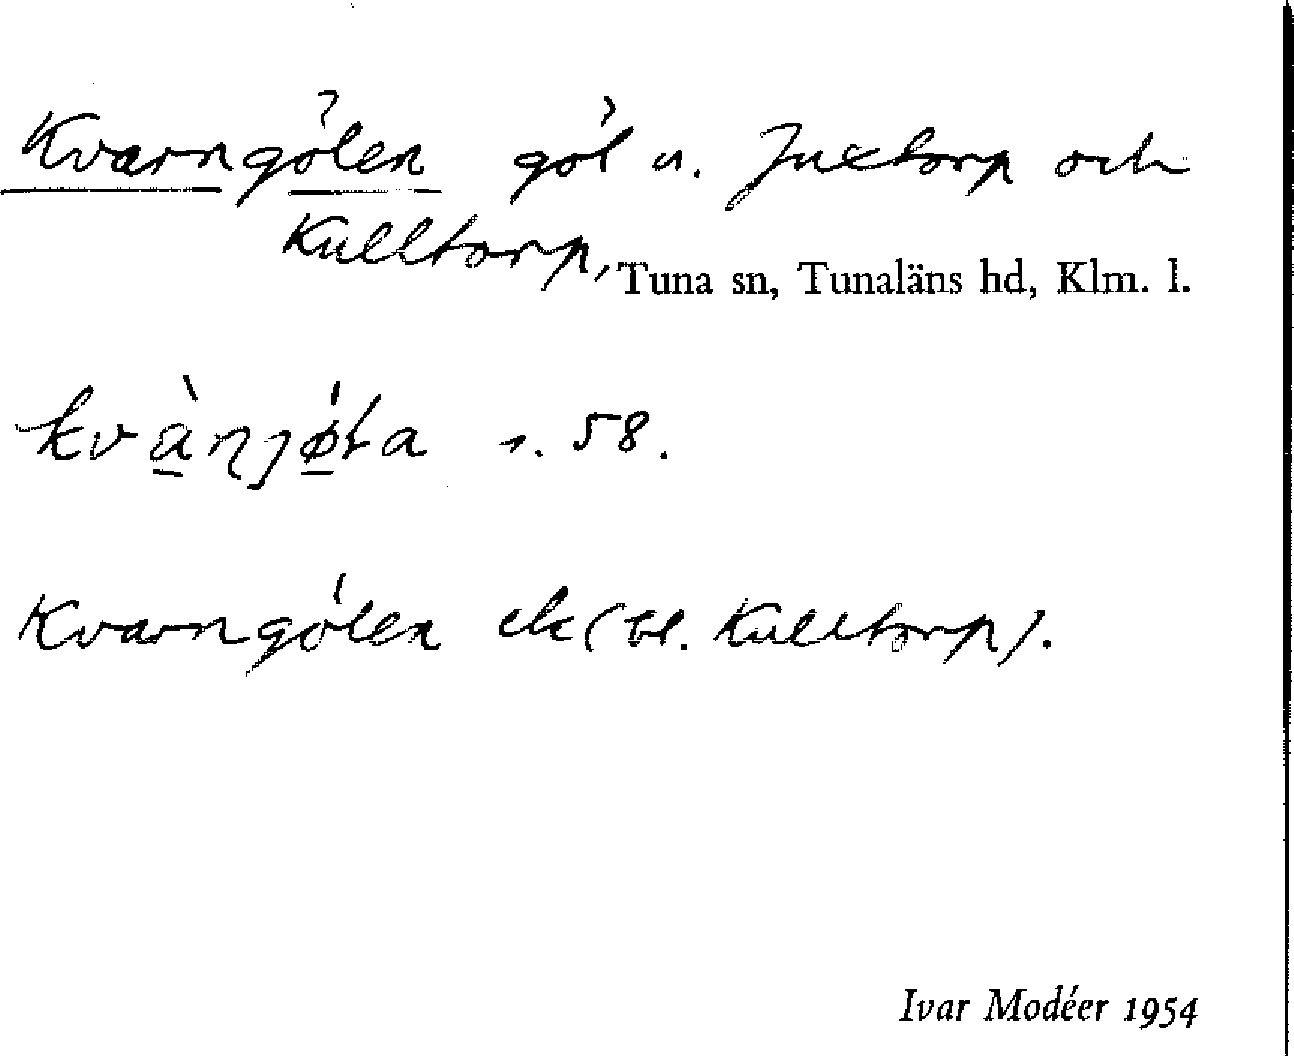 Kvarngölen göl u. Juxtorp och
Kulltorp, Tuna sn, Tunaläns hd, Klm. l.
s. 58.
Kvarngölen ek (bl. Kulltorp).
Ivar Modéer 1954